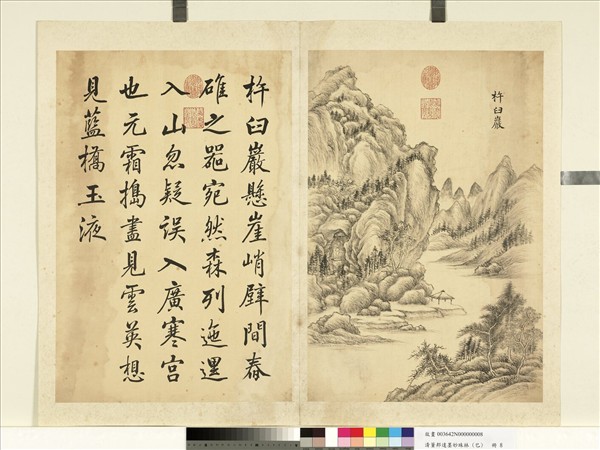 杵臼巖
杵臼巖懸崖峭壁間舂
碓之器宛然森列迤邐
入山忽疑誤入廣寒宮
也元霜搗盡見雲英想
見藍橋玉液
故畫 003642N000000008
清董邦達墨妙珠林（巳） 冊 8